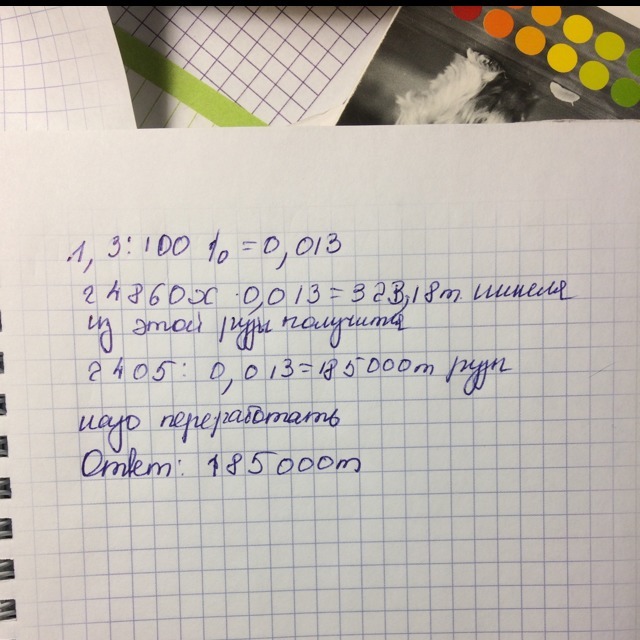 1,3:100 % = 0,013
24860х · 0,013 = 323,18т никеля
из этой руды получится
2405 : 0,013 = 185000т руды
надо переработать
Ответ: 185000т